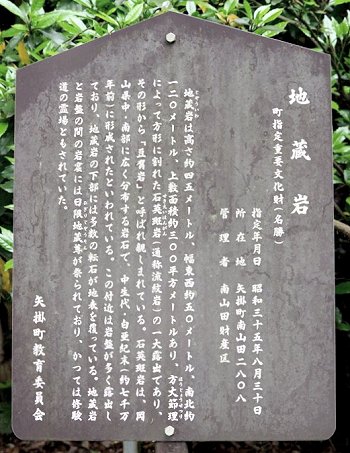 地蔵岩
町指定重要文化財(名勝)
指定年月日　昭和三十五年八月三十日
所在地　矢掛町南山田二八〇八
管理者　南山田財産区
地蔵岩は高さ約四五メートル、幅東西約五〇メートル、南北約
一二〇メートル、上敷面積約三〇〇平方メートルあり、方丈節理
によって方形に割れた石英斑岩(通称流紋岩)の一大露出であり、
その形から「豆腐岩」と呼ばれ親しまれている。石英斑岩は、岡
山県中・南部に広く分布する岩石で、中生代・白亜紀末(約七千万
年前)に形成されたといわれている。この付近は岩盤が多く露出し
ており、地蔵岩の下部には多数の転石が地表を覆っている。地蔵岩
と岩盤の間の岩窟には日限地蔵尊が祭られており、かつては修験
道の霊場ともされていた。
矢掛町教育委員会